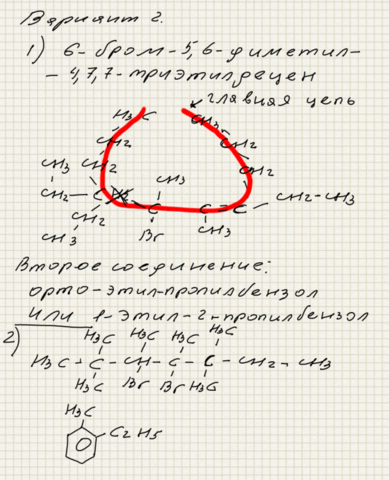 Вариант 2.
1) 6-бром-5,6-диметил-
-4,7,7-триэтилдецен
главная цепь
H3C CH3
CH2 CH2
CH3 CH2 CH3 CH2
CH2 - C C C = C CH2-CH3
CH2 Br CH3
CH3
Второе соединение:
орто-этил-пропилбензол
или 1-этил-2-пропилбензол
2) H3C H3C H3C H3C
H3C - C - CH - C - C - CH2 - CH3
H3C Br Br H3C
H3C
C2H5